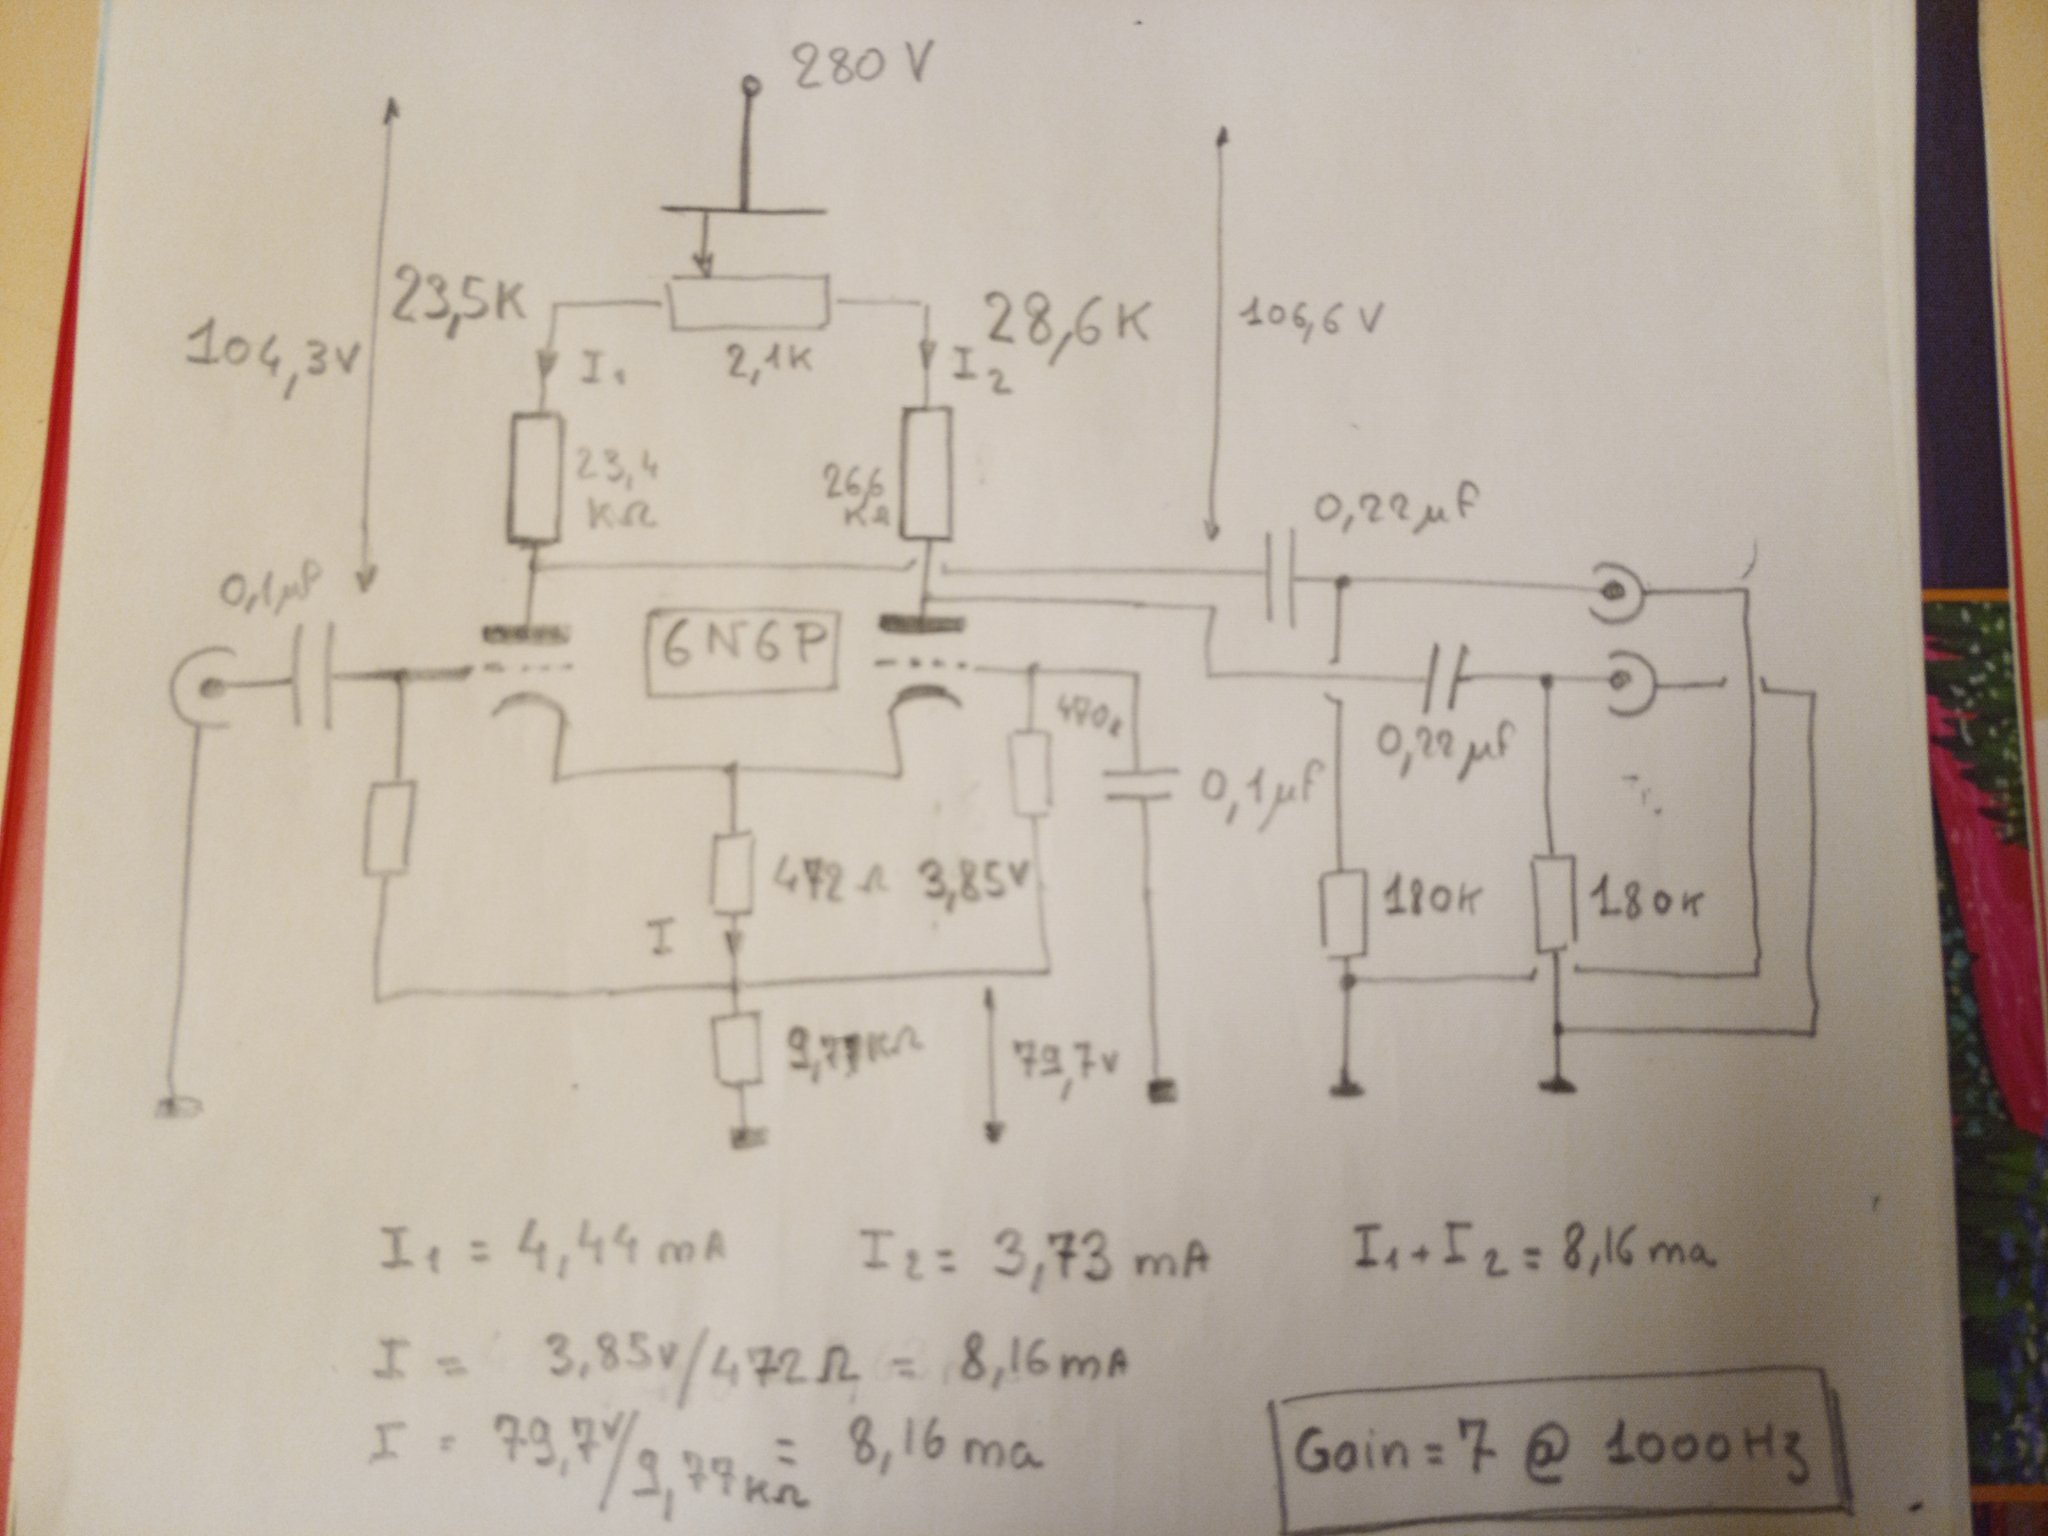 280 V
23,5K
28,6K
104,3V
106,6 V
2,1K
I1
I2
23,4
KΩ
26,6
KΩ
0,22µf
0,1µf
6N6P
470K
0,22µf
0,1µf
472Ω 3,85V
180K
180K
I
9,77KΩ
79,7V
I1 = 4,44 mA
I2 = 3,73 mA
I1 + I2 = 8,16 ma
I = 3,85V/472Ω = 8,16 mA
I = 79,7V/9,77KΩ = 8,16 ma
Gain = 7 @ 1000 Hz